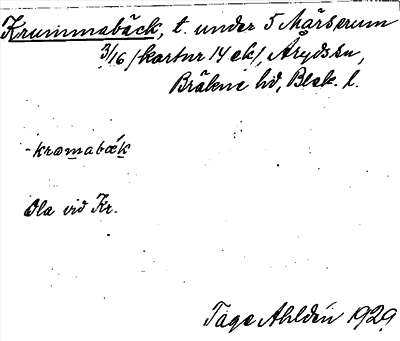 Krummabäck, t. under 5 Märserum
3/16 (kartur 14 ek), Åryds sn,
Bräkne hd, Blek. l.
-kromabæ̀k
Ola vid Kr.
Tage Ahldén 1929